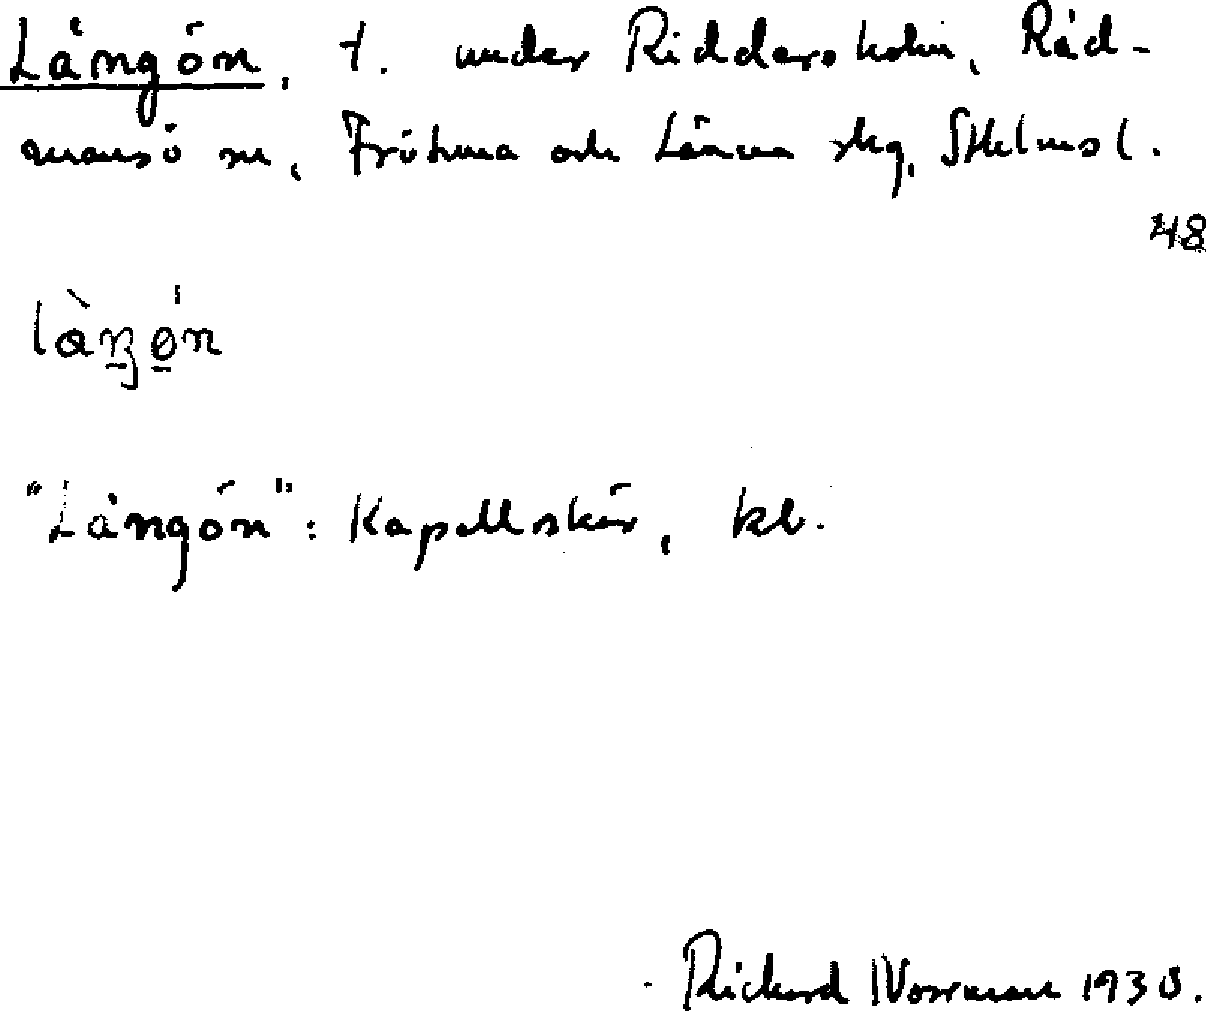 Långön, t. under Riddersholm, Råd-
mansö sn, Frötuna och Länna skg, Sthlms l.
48
làŋø̀n
"Långön": Kapellskär, kb.
Rickard Norrman 1930.